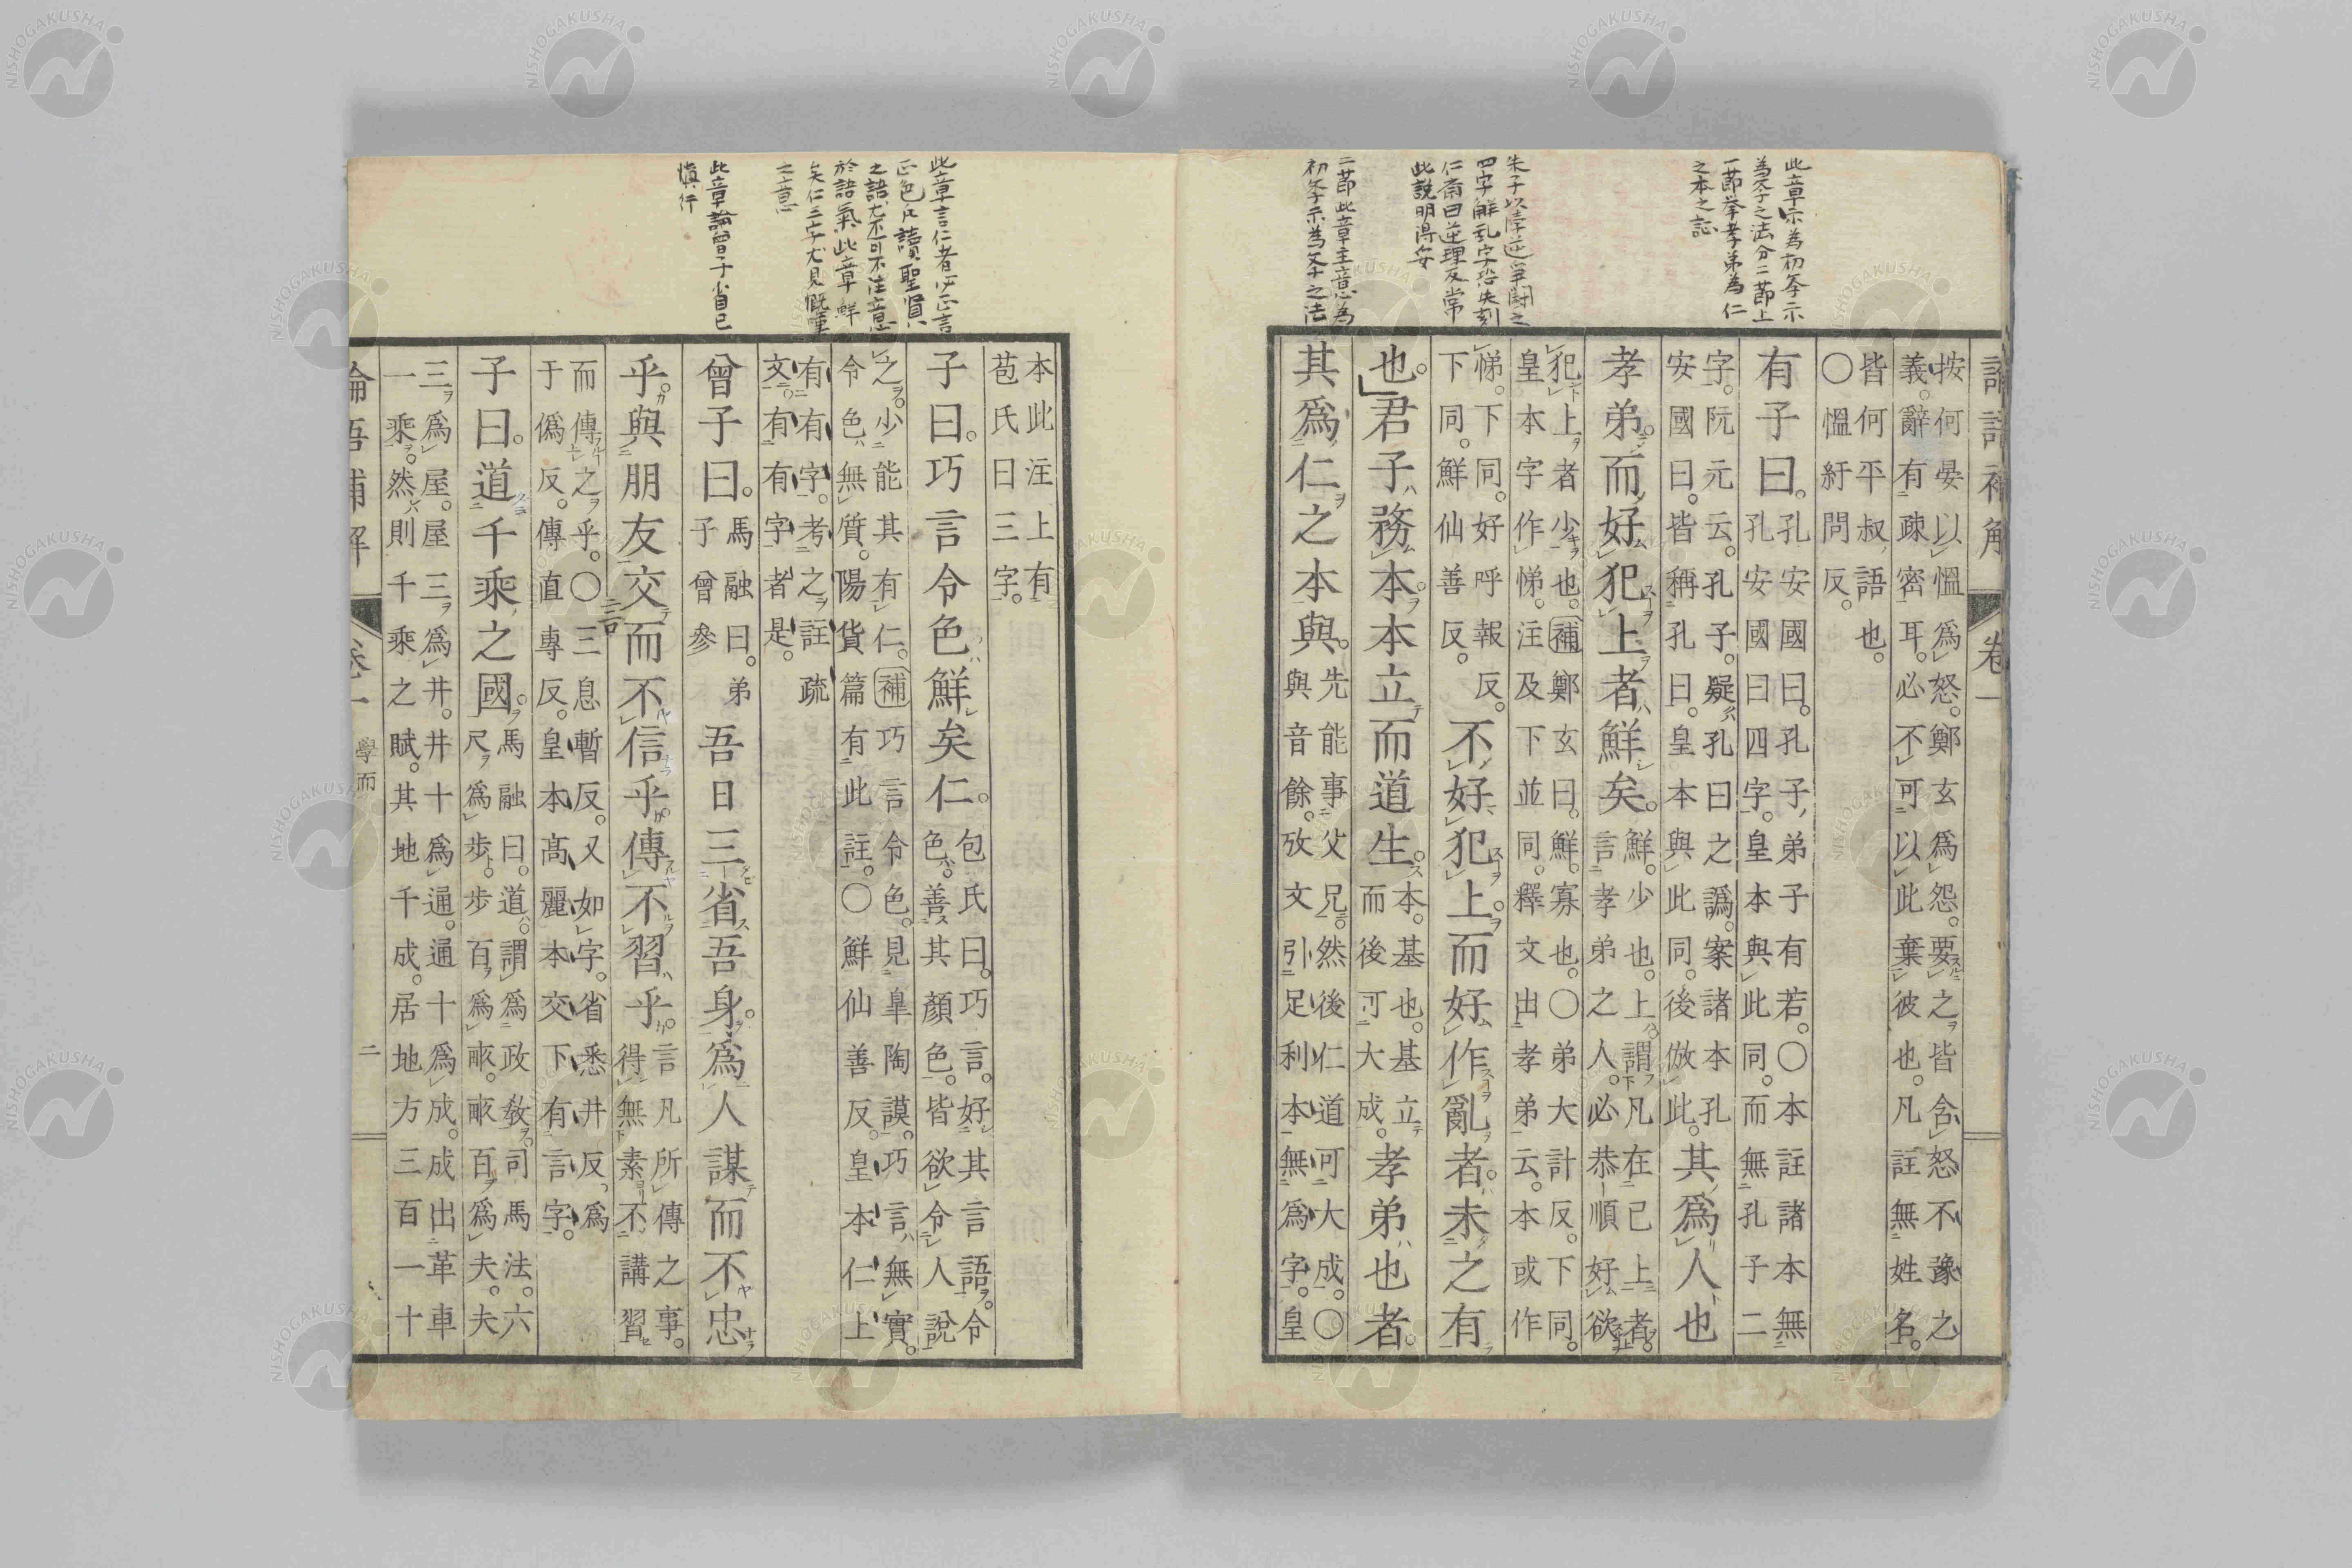 此章示為初學示
為學之法分二節上
一節挙孝弟為仁
之本之訟
朱子以悖逆爭鬪之
四字解乱字恐失刻
仁斎曰逆理反常
此說明得安
二節此章主意為
初學示為學之法
論語補解 卷一
按何晏以慍爲怒。鄭玄爲怨。要之皆含怒不豫之
義。辭有疎密耳。必不可以此棄彼也。凡註無姓名。
皆何平叔語也。
〇慍紆問反。
有子曰。
孔安國曰。孔子弟子有若。〇本註諸本無
孔安國曰四字。皇本與此同。而無孔子二
字。阮元云。孔子。疑孔曰之譌。案諸本孔
安國曰。皆稱孔曰。皇本與此同。後倣此。
其爲人也
孝弟。而好犯上者鮮矣。
鮮。少也。上。謂凡在己上者。
言孝弟之人。必恭順好欲
犯上者少也。補鄭玄曰。鮮。寡也。〇弟大計反。下同。
皇本字作悌。注及下並同。釋文出孝弟云。本或作
悌。下同。好呼報反。
下同。鮮仙善反。
不好犯上。而好作亂者。未之有
也。君子務本。本立而道生。
本。基也。基立
而後可大成。
孝弟也者。
其爲仁之本與。
先能事父兄。然後仁道可大成。〇
與音餘。攷文引足利本無爲字。皇
此章言仁者必正言
正色凡讀聖賢
之語尤不可不注意
於語氣此章鮮
矣仁三字尤見慨嘆
之意
此章論曾子省自己
慎行
本此注上有
苞氏曰三字。
子曰。巧言令色鮮矣仁。
包氏曰。巧言。好其言語。令
色。善其顏色。皆欲令人說
之。少能其有仁。補巧言令色。見皐陶謨。巧言無實。
令色無質。陽貨篇有此註。〇鮮仙善反。皇本仁上
有有字。考之註疏
文。有有字者是。
曾子曰。
馬融曰。弟
子曾參
吾日三省吾身。爲人謀而不忠
乎。與朋友交而不信乎。傳不習乎。
言凡所傳之事。
得無素不講習
而傳之乎。〇三息暫反。又如字。省悉井反。爲
于僞反。傳直專反。皇本高麗本交下有言字。
子曰。道千乘之國。
馬融曰。道。謂爲政敎。司馬法。六
尺爲步。步百爲畝。畝百爲夫。夫
三爲屋。屋三爲井。井十爲通。通十爲成。成出革車
一乘。然則千乘之賦。其地千成。居地方三百一十
論語補解 卷一 學而 二
NISHOGAKUSHA